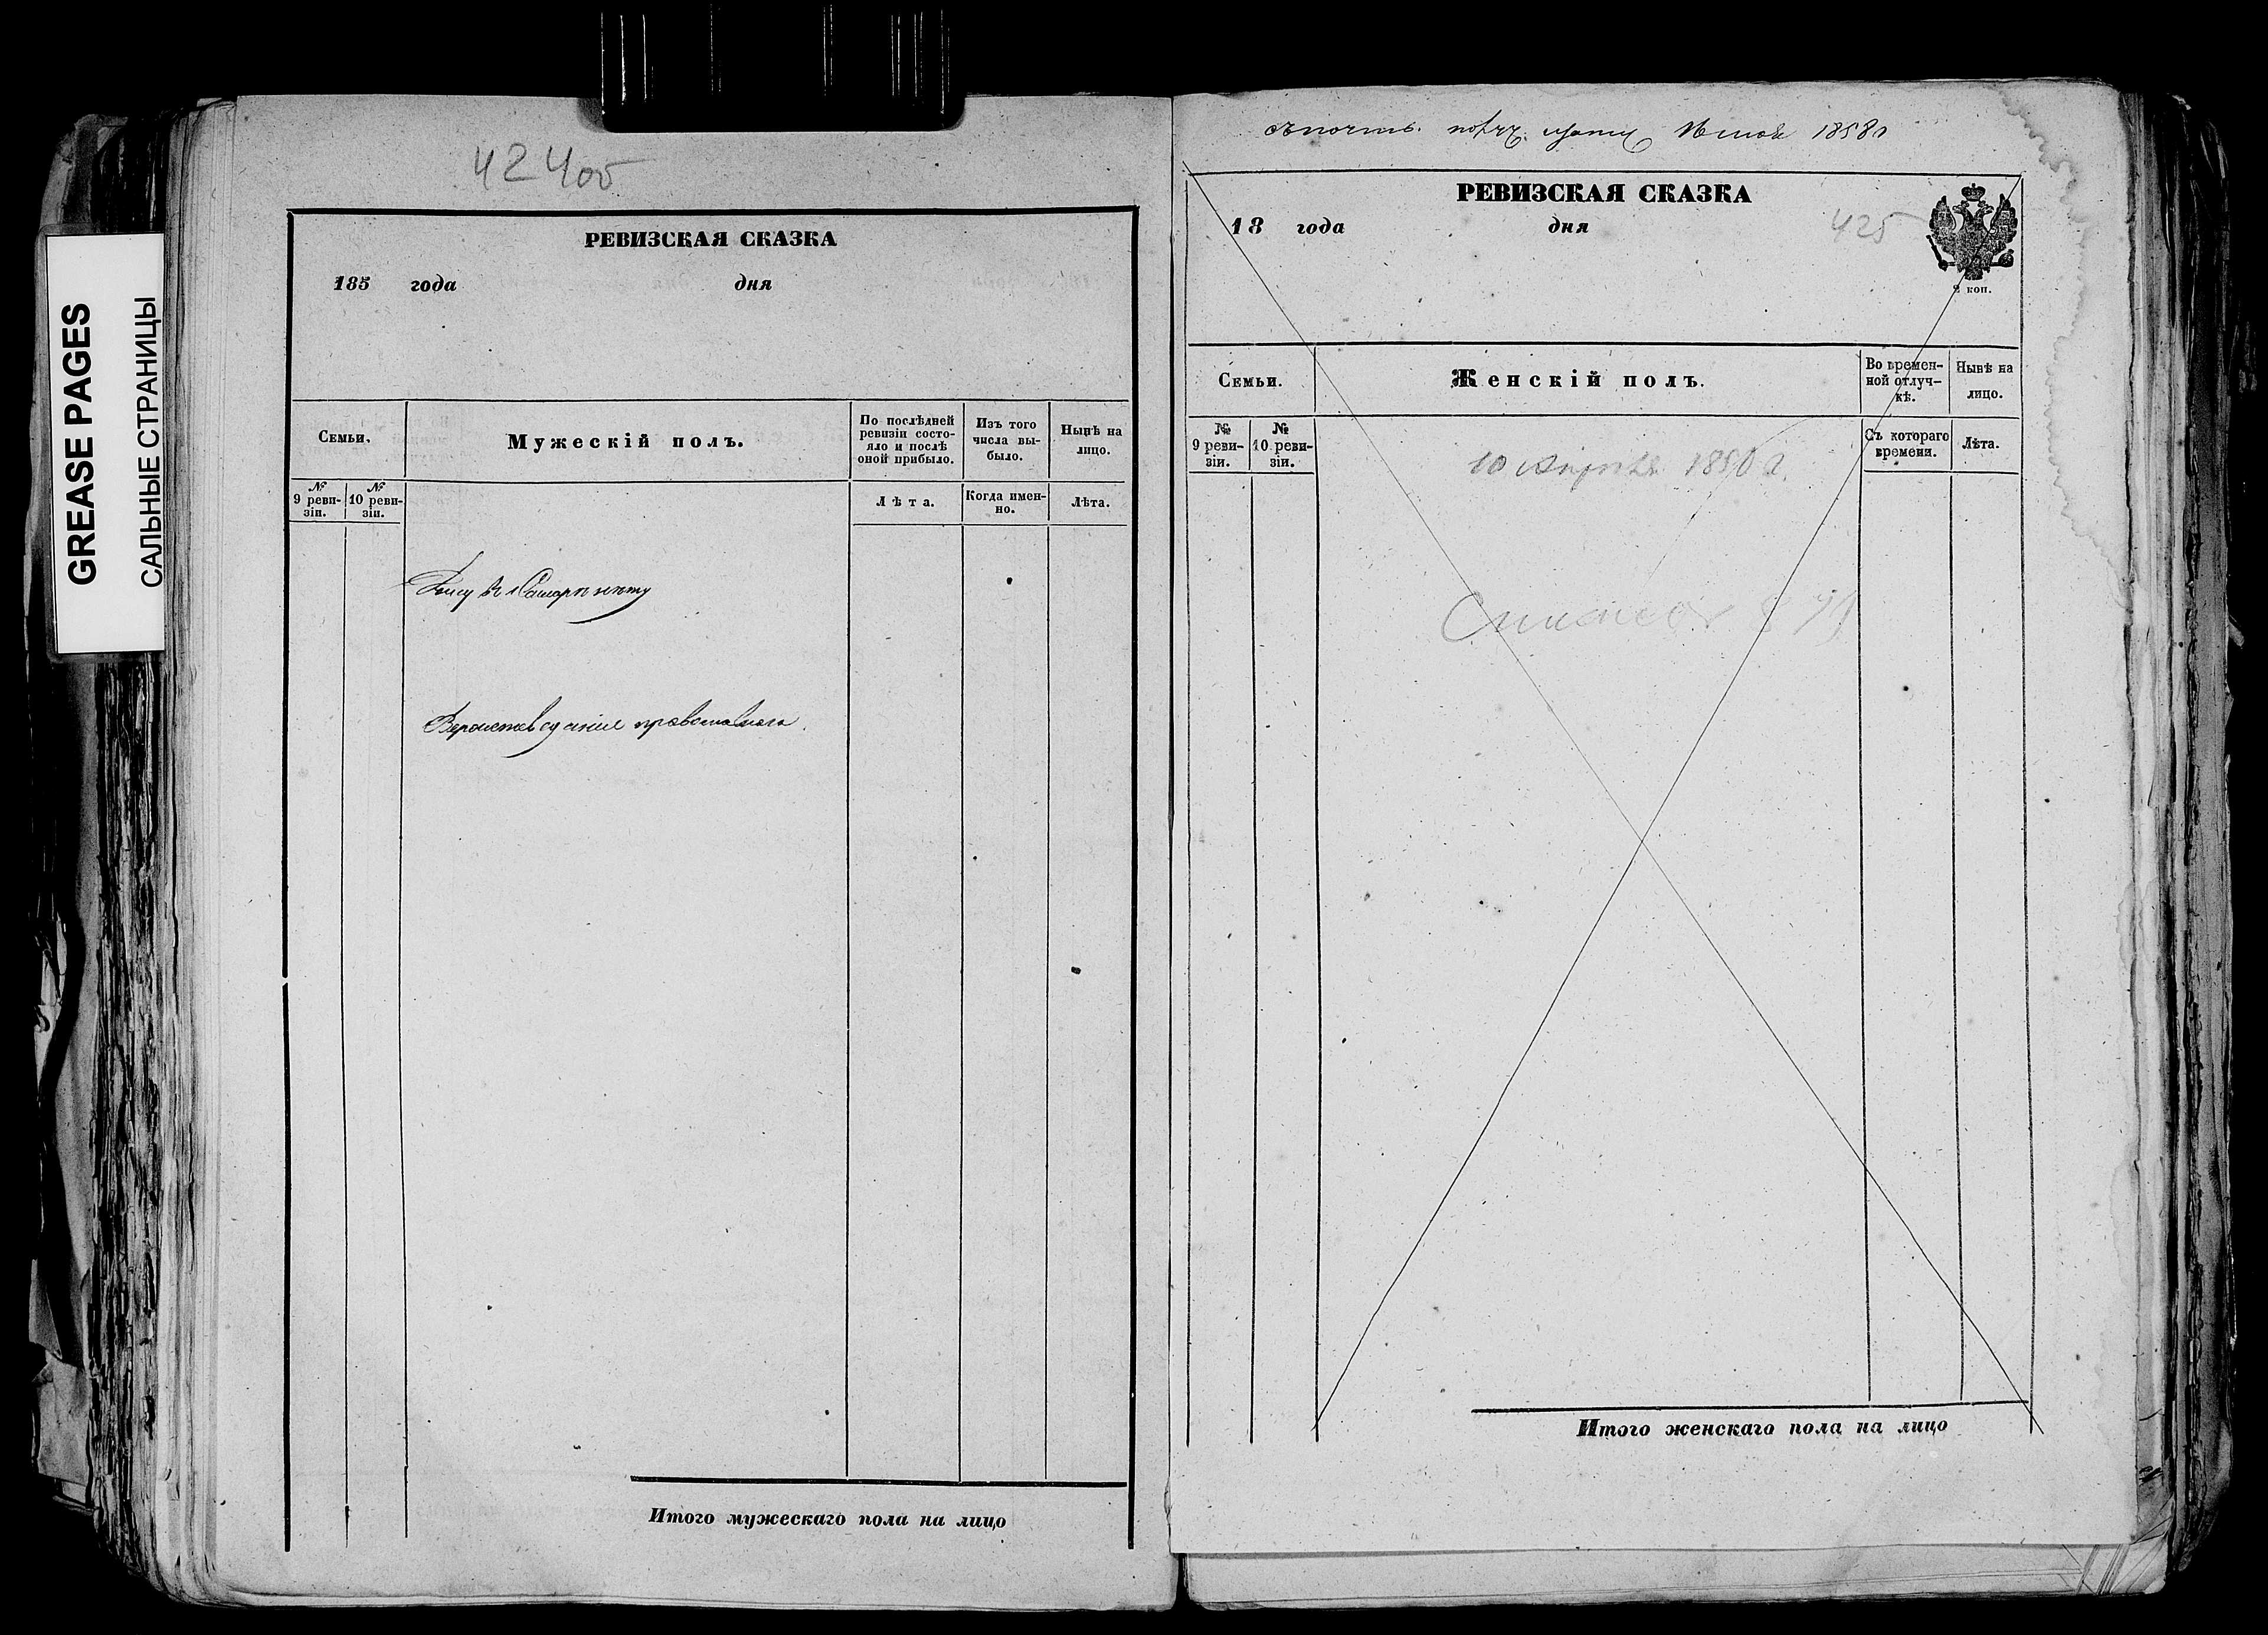 GREASE PAGES
САЛЬНЫЕ СТРАНИЦЫ
424об
РЕВИЗСКАЯ СКАЗКА
185 года дня
Семьи.
Мужескій полъ.
По послѣдней ревизіи состо-
яло и послѣ
оной прибыло.
Изъ того
числа вы-
было.
Нынѣ на
лицо.
№
9 реви-
зіи.
№
10 реви-
зіи.
Лѣта.
Когда имен-
но.
Лѣта.
Вероисповедания православнаго.
Итого мужескаго пола на лицо
1858
РЕВИЗСКАЯ СКАЗКА
18 года дня
425
2 коп.
Семьи.
Женскій полъ.
Во времен-
ной отлуч-
кѣ.
Нынѣ на
лицо.
№
9 реви-
зіи.
№
10 реви-
зіи.
Съ котораго
времени.
Лѣта.
10 Апреля
Итого женскаго пола на лицо